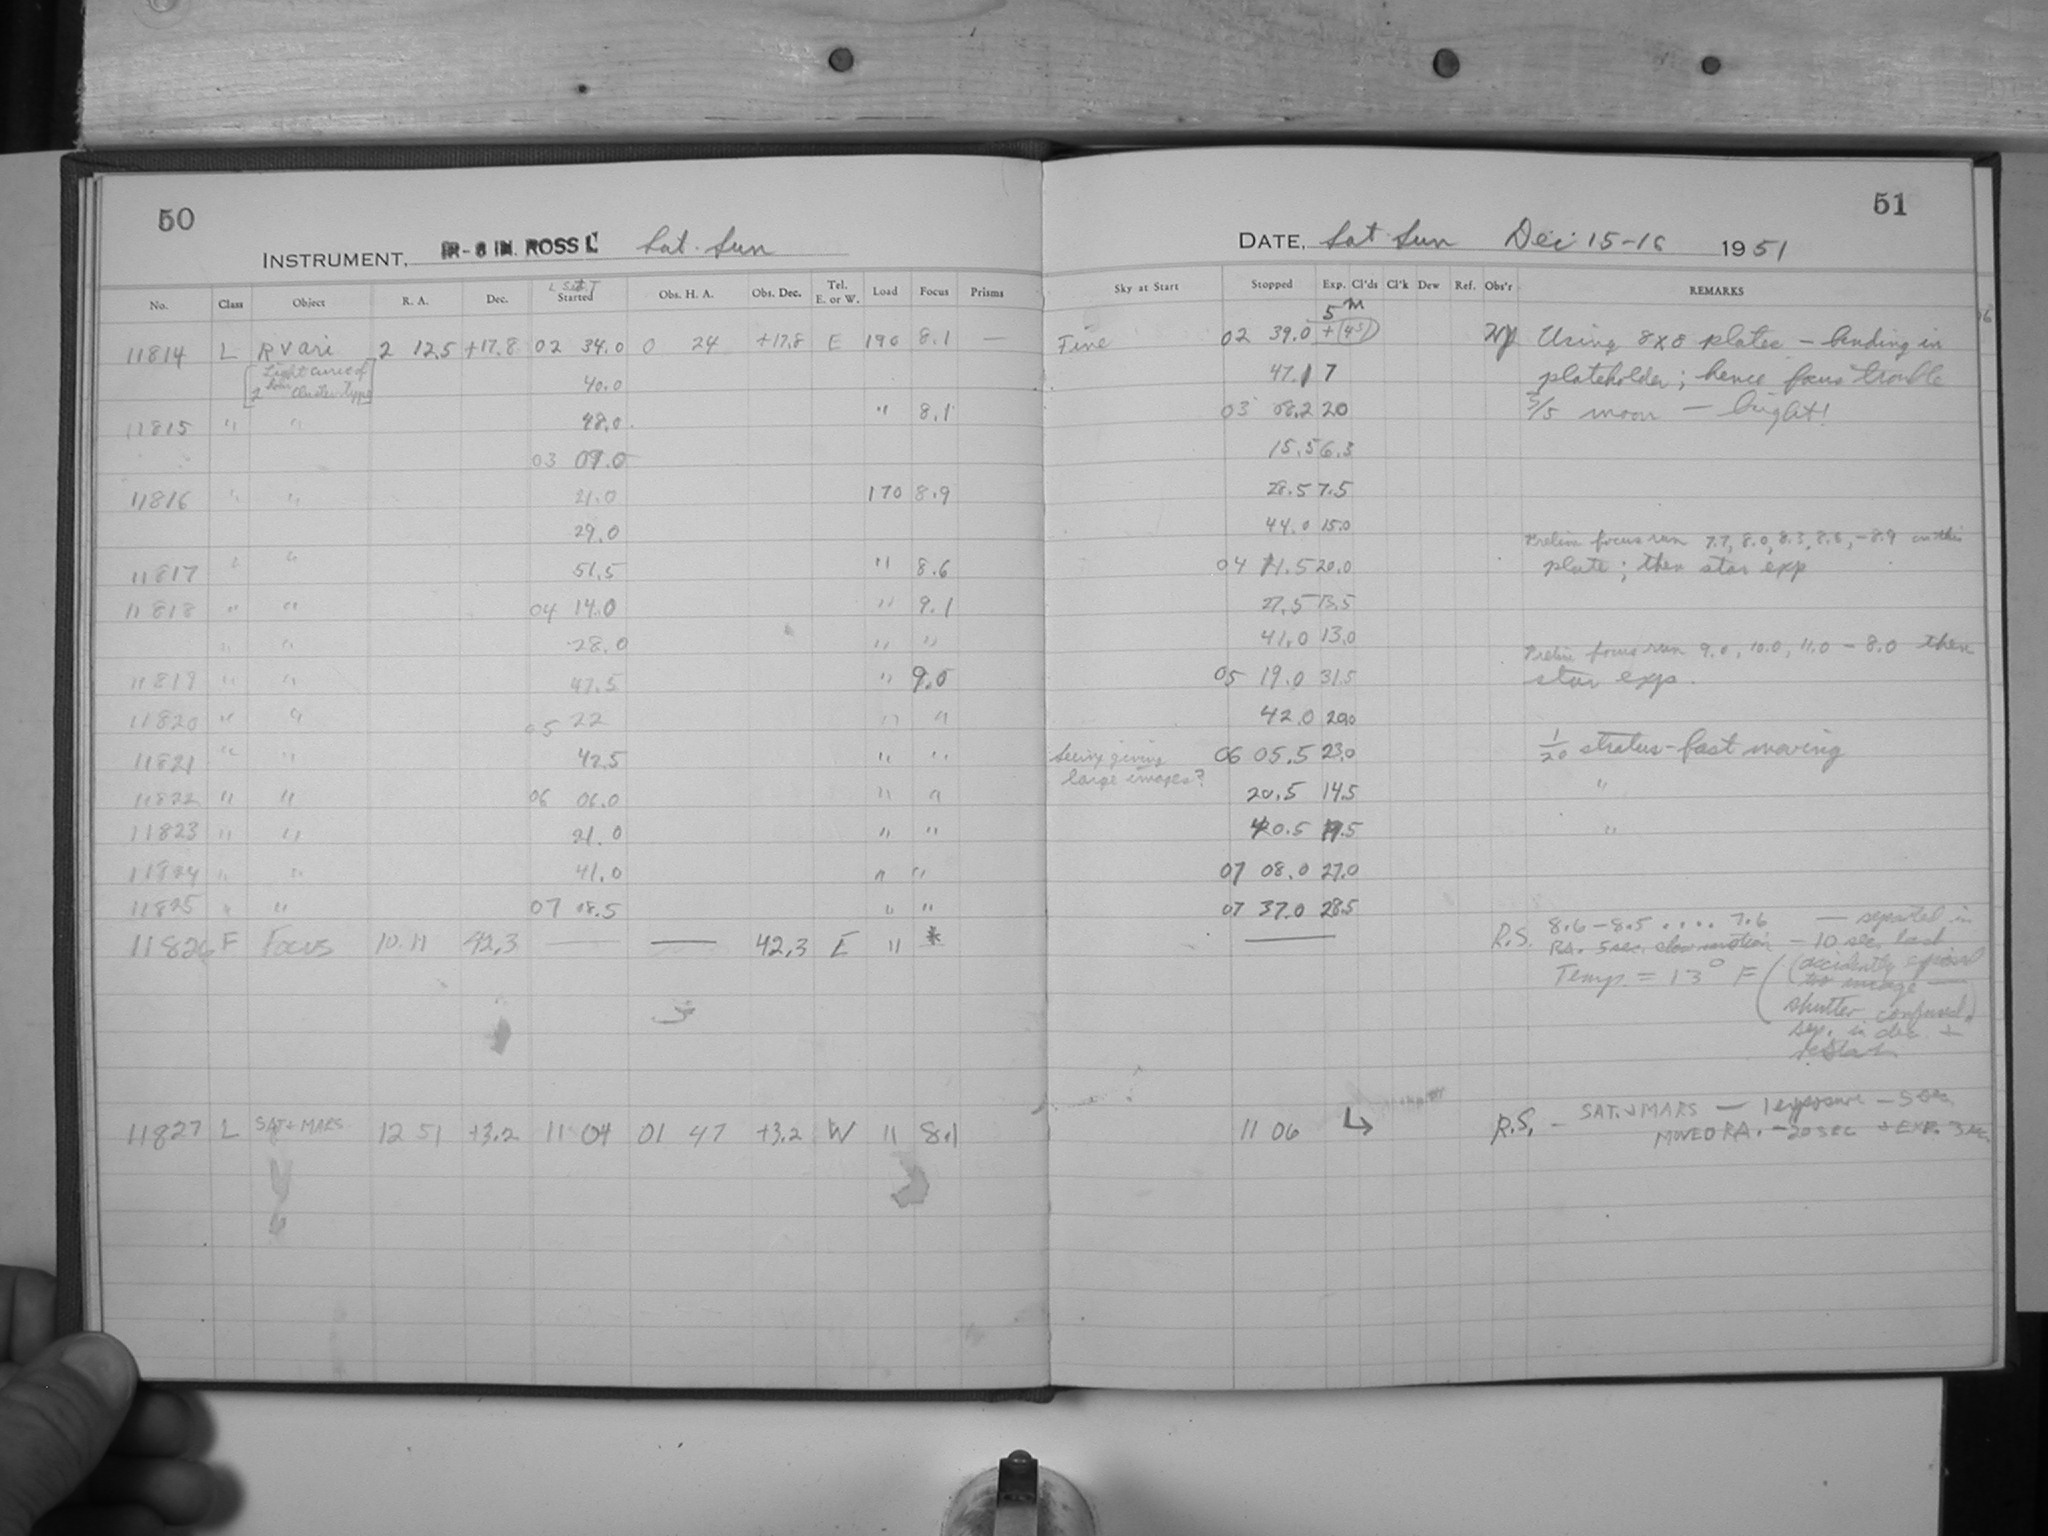 50
INSTRUMENT, IR-8 IN. ROSS L Sat. Sun
No. Class Object R. A. Dec. Started Obs. H. A. Obs. Dec. Tel. E. or W. Load Focus Prisms
11814 L RV Ari 2 12.5 +17.8 02 34.0 0 24 +17.8 E 190 8.1 —
[Light curve of 2 cluster type] 40.0
11815 " " 48.0 " 8.1
03 09.0
11816 " " 21.0 170 8.9
29.0
11817 " " 51.5 " 8.6
11818 " " 04 14.0 " 9.1
" " 28.0 " "
11819 " " 47.5 " 9.0
11820 " " 05 22 " "
11821 " " 42.5 " "
11822 " " 06 06.0 " "
11823 " " 21.0 " "
11824 " " 41.0 " "
11825 " " 07 08.5 " "
11826 F Focus 10 11 42.3 — — 42.3 E " *
11827 L SAT + MARS 12 51 +3.2 11 04 01 47 +3.2 W 11 8.1
51
DATE, Sat Sun Dec 15-16 1951
Sky at Start Stopped Exp. Cl'ds Cl'k Dew Ref. Obs'r REMARKS
5 m
Fine 02 39.0 + (45) Using 8x8 plates — bending in
47.1 7 plateholder; hence focus trouble
03 08.2 20 3/5 moon — bright!
15.5 6.3
28.5 7.5
44.0 15.0
Prelim focus run 7.7, 8.0, 8.3, 8.6, -8.9 on this
04 11.5 20.0 plate; then star exp
27.5 13.5
41.0 13.0
Prelim focus run 9.0, 10.0, 11.0 - 8.0 then
05 19.0 31.5 star exp.
42.0 20.0
Seeing giving 06 05.5 23.0 1/20 stratus - fast moving
large images?
20.5 14.5 "
40.5 19.5 "
07 08.0 27.0
07 37.0 28.5
R.S. 8.6 - 8.5 .... 7.6 — separated in
RA. 5 sec. slow motion - 10 sec. last
Temp = 13° F (accidently
shutter confused.
sep. in dec. +
11 06 R.S. - SAT. + MARS — 1 exposure - 5 sec
MOVED RA. - 20 SEC + EXP. 3 SEC.